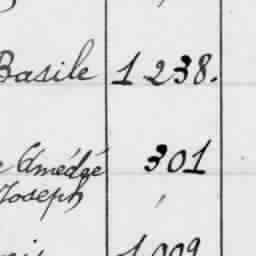 Basile 1238.
Amédée 301
Joseph